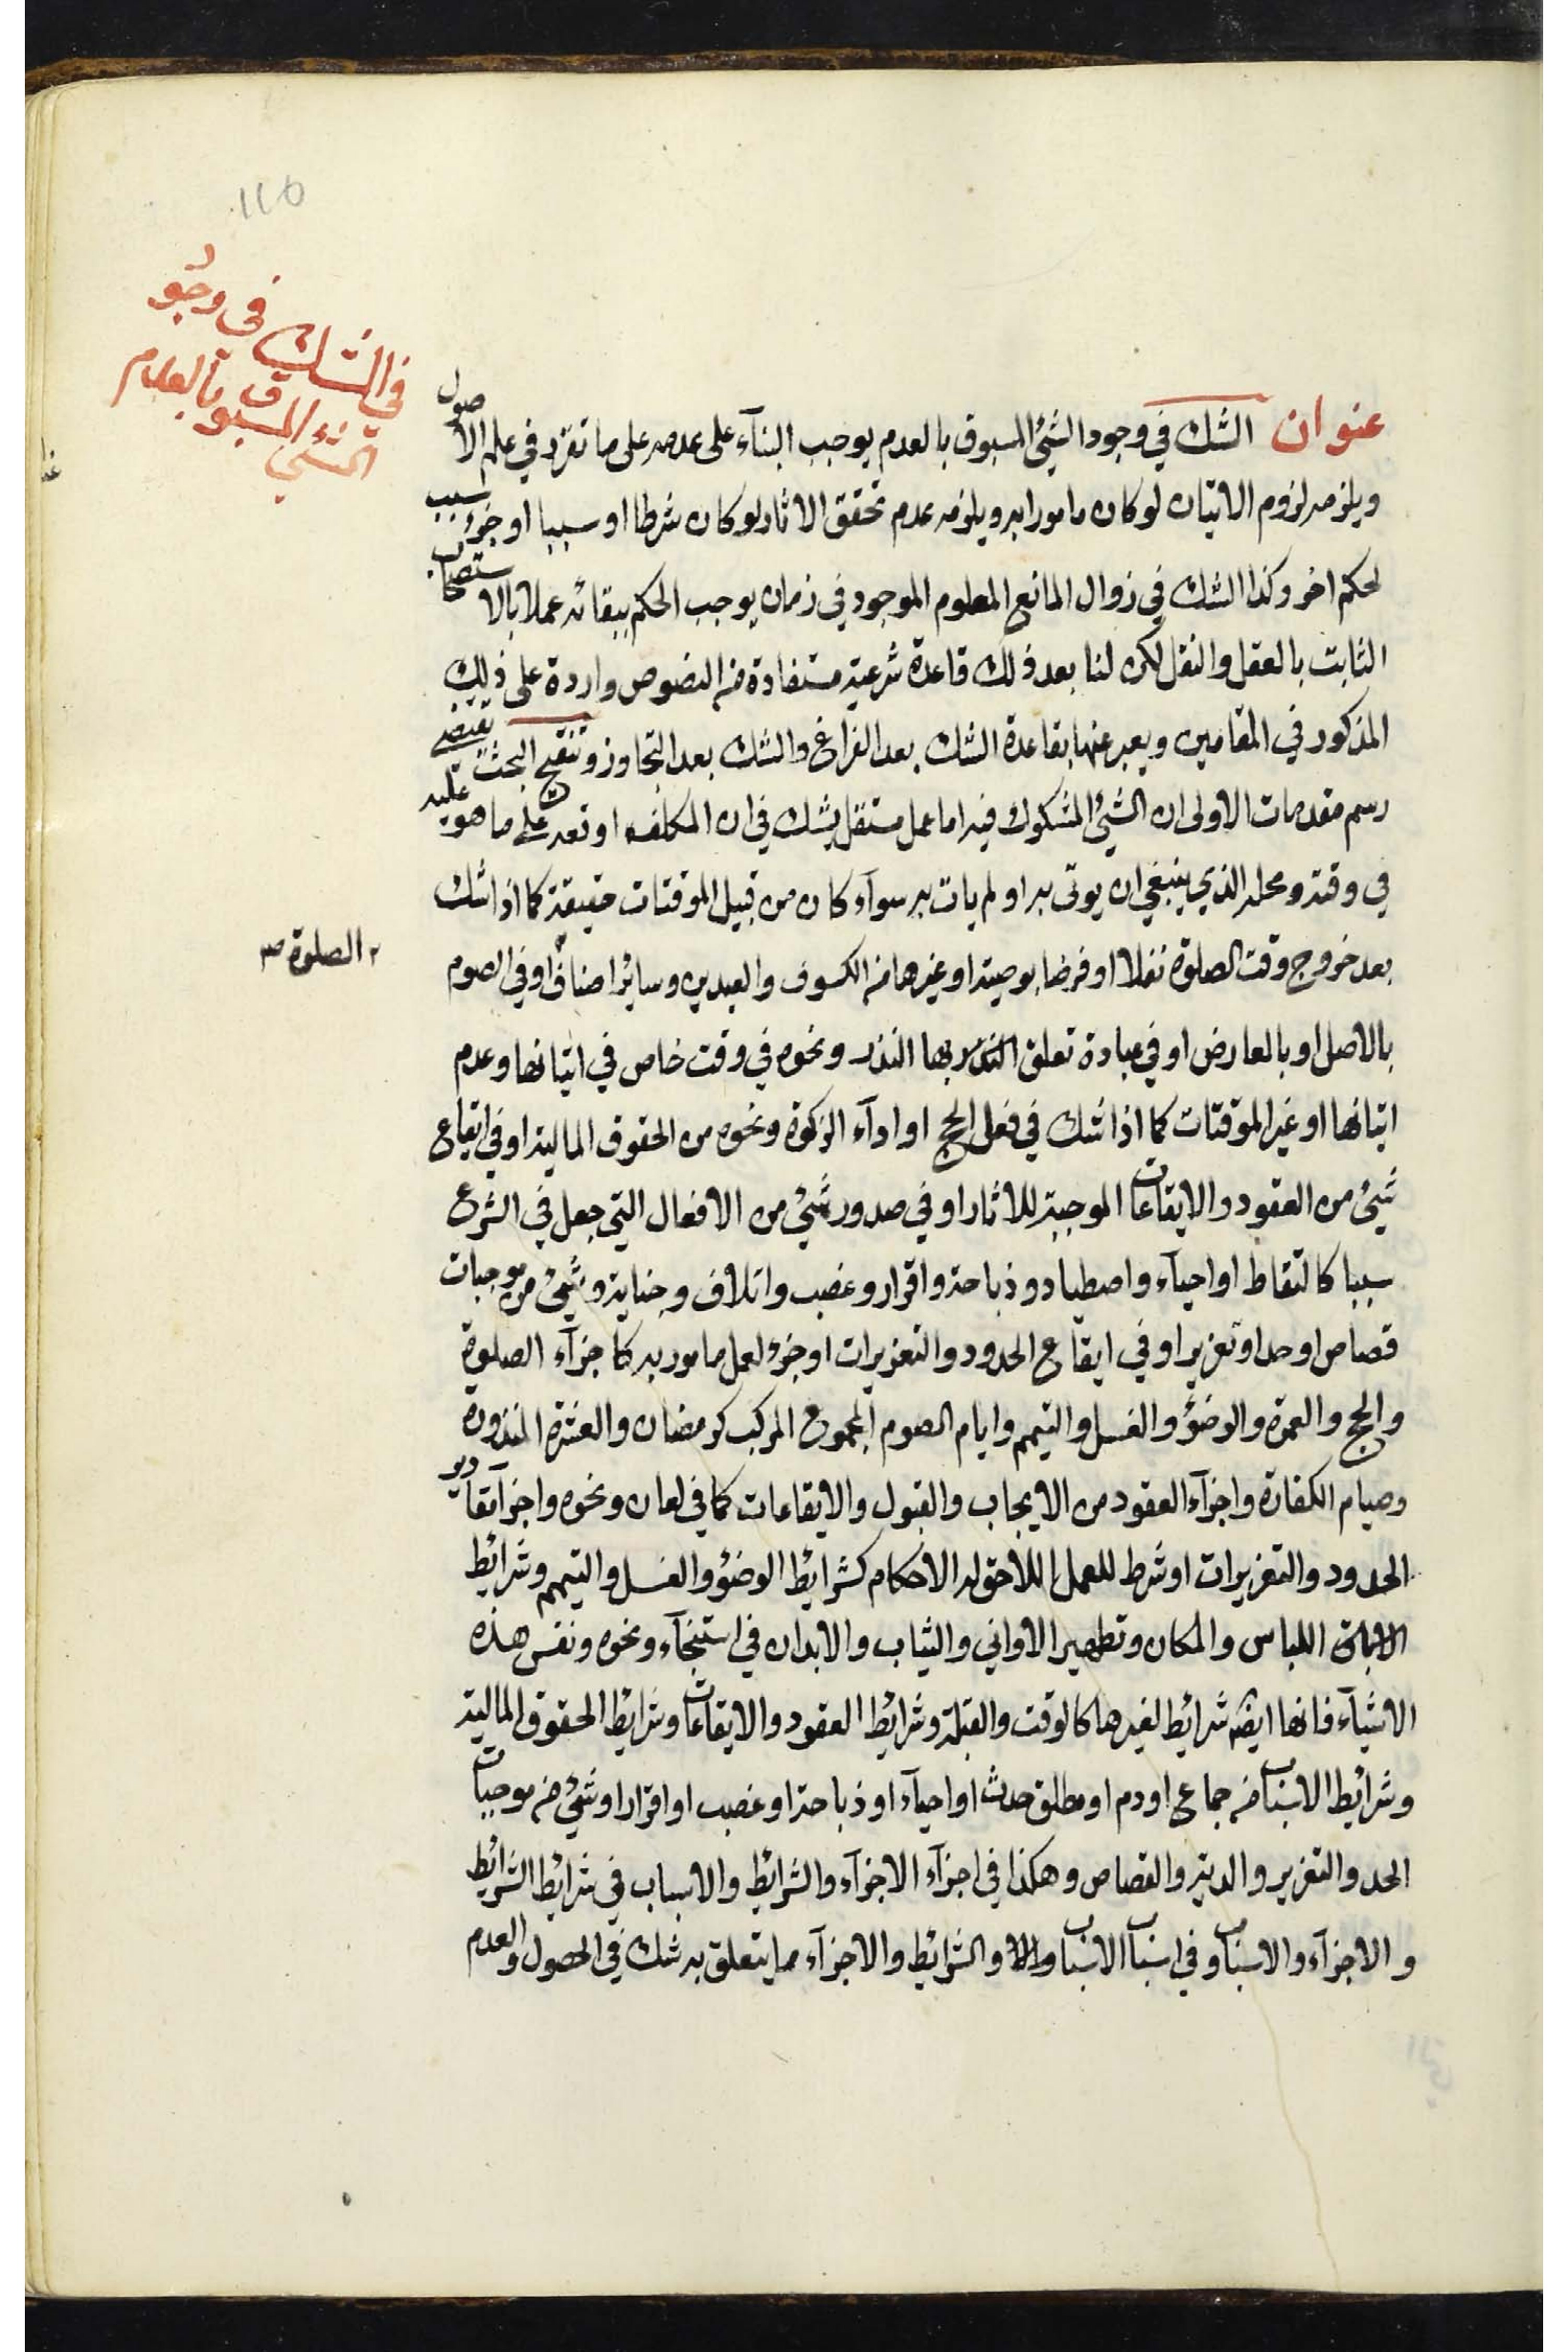 ١١٥
في الشك في وجود
الشيء المسبوق بالعدم
عنوان الشك في وجود الشئ المسبوق بالعدم يوجب البنآء على عدمه على ما تقرر في علم الاصول
ويلزمه لزوم الاتيان لو كان مامورا به ويلزمه عدم تحقق الاثار لو كان شرطا او سببا او جزء سبب
لحكم اخر وكذا الشك في زوال المانع المعلوم الموجود في زمان يوجب الحكم ببقائه عملا بالاستصحاب
الثابت بالعقل والنقل لكن لنا بعد ذلك قاعدة شرعية مستفادة من النصوص واردة على ذلك
المذكور في المقامين ويعبر عنها بقاعدة الشك بعد الفراغ والشك بعد التجاوز وتنقيح البحث يقتضي
رسم مقدمات الاولى ان الشئ المشكوك فيه اما عمل مستقل يشك في ان المكلف اوقعه على ما هو عليه
في وقته ومحله الذي ينبغي ان يوتى به او لم يات به سوآء كان من قبيل الموقتات حقيقة كما اذا شك
بعد خروج وقت الصلوة نفلا او فرضا يوميته او غيرها من الكسوف والعيدين وساير اصناف او في الصوم
الصلوة صح
بالاصل او بالعارض او في عبادة تعلق بها النذر ونحوه في وقت خاص في اتيانها وعدم
اتيانها او غير الموقتات كما اذا شك في فعل الحج او ادآء الزكوة ونحوه من الحقوق المالية او في ايقاع
شئ من العقود والايقاعات الموجبة للاثار او في صدور شئ من الافعال التي جعل في الشرع
سببا كالتقاط او احيآء واصطياد وذباحة واقرار وغصب واتلاف وجناية وشئ من موجبات
قصاص او حد او تعزير او في ايقاع الحدود والتعزيرات او جزء لعمل مامور به كاجزآء الصلوة
والحج والعمرة والوضؤ والغسل والتيمم وايام الصوم المجموع المركب كرمضان والعشرة المنذورة
وصيام الكفارة واجزآء العقود من الايجاب والقبول والايقاعات كما في لعان ونحوه واجزآ مقادير
الحدود والتعزيرات او شرط للعمل اللاحق له الاحكام كشرايط الوضؤ والغسل والتيمم وشرايط
اللباس والمكان وتطهير الاواني والثياب والابدان في استنجآء ونحوه ونفس هذه
الاشيآء فانها ايضا شرائط لغيرها كالوقت والقبلة وشرايط العقود والايقاعات وشرايط الحقوق المالية
وشرايط الاسباب من جماع او دم او مطلق حدث او احيآء او ذباحة او غصب او اقرار او شئ من موجبات
الحد والتعزير والدية والقصاص وهكذا في اجزآء الاجزآء والشرائط والاسباب في شرايط الشرايط
والاجزآء والاسباب وفي اسباب الاسباب والشرايط والاجزآء مما يتعلق به شك في الحصول والعدم